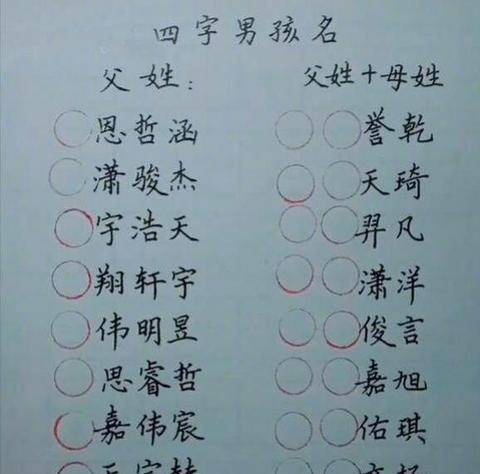 四字男孩名
父姓： 父姓+母姓
恩哲涵 誉乾
潇骏杰 天琦
宇浩天 羿凡
翔轩宇 潇洋
伟明昱 俊言
思睿哲 嘉旭
嘉伟宸 佑琪